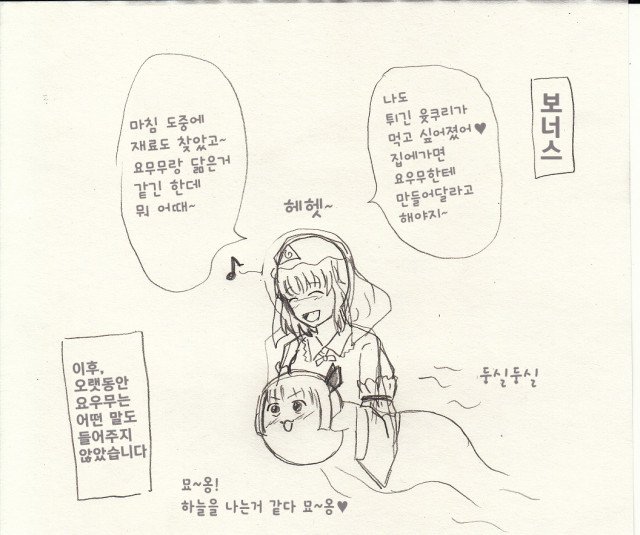 보너스
나도
튀긴 윳쿠리가
먹고 싶어졌어♥
집에가면
요우무한테
만들어달라고
해야지~
마침 도중에
재료도 찾았고~
요무무랑 닮은거
같긴 한데
뭐 어때~
헤헷~
♪
둥실둥실
묘~옹!
하늘을 나는거 같다 묘~옹♥
이후,
오랫동안
요우무는
어떤 말도
들어주지
않았습니다